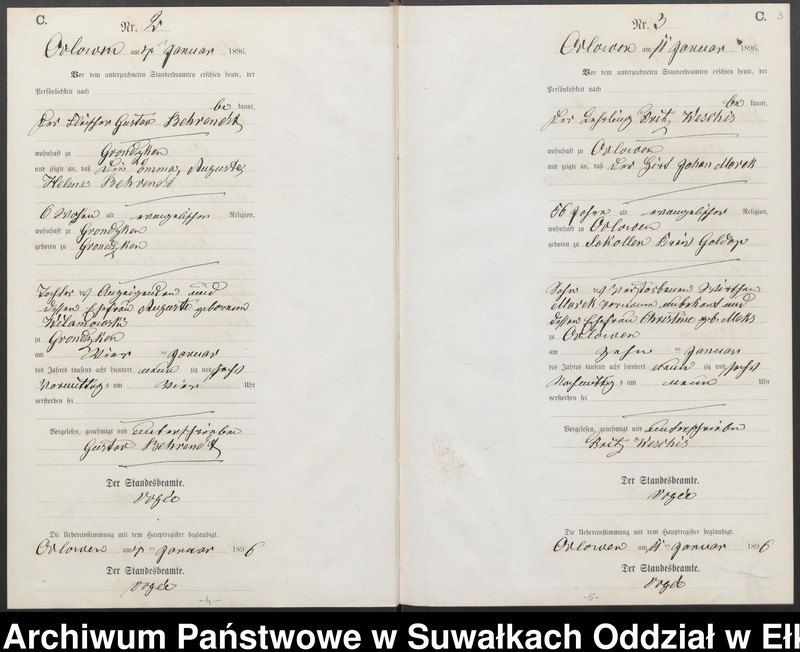 C.
Nr. 2
Orlowen am Januar 1896.
Vor dem unterzeichneten Standesbeamten erschien heute, der
Persönlichkeit nach
be kannt,
der Fleischer Gustav Behrendt
wohnhaft zu Grondzken
und zeigte an, daß die Emma, Auguste,
Helene Behrendt
6 Wochen alt evangelischer Religion,
wohnhaft zu Grondzken
geboren zu Grondzken
Tochter des Anzeigenden und
dessen Ehefrau Auguste geborenen
zu Grondzken
am Vier ten Januar
des Jahres tausend acht hundert neun zig und sechs
Vormittags um Vier Uhr
verstorben sei
Vorgelesen, genehmigt und unterschrieben
Gustav Behrendt
Der Standesbeamte.
Die Uebereinstimmung mit dem Hauptregister beglaubigt.
Orlowen am ten Januar 1896
Der Standesbeamte.
-4-
C. 3
Nr. 3
Orlowen am 11 Januar 1896.
Vor dem unterzeichneten Standesbeamten erschien heute, der
Persönlichkeit nach
be kannt,
der Lehrling Fritz
wohnhaft zu Orlowen
und zeigte an, daß der Hirt Johan Marek
56 Jahre alt evangelischer Religion,
wohnhaft zu Orlowen
geboren zu Sokollen Kreis Goldap
Sohn des verstorbenen Wirthen
Marek Vorname unbekant und
dessen Ehefrau Christine geb.
zu Orlowen
am zehn ten Januar
des Jahres tausend acht hundert neun zig und sechs
Nachmittags um neun Uhr
verstorben sei
Vorgelesen, genehmigt und unterschrieben
Fritz
Der Standesbeamte.
Die Uebereinstimmung mit dem Hauptregister beglaubigt.
Orlowen am 11 ten Januar 1896
Der Standesbeamte.
-5-
Archiwum Państwowe w Suwałkach Oddział w Ełk